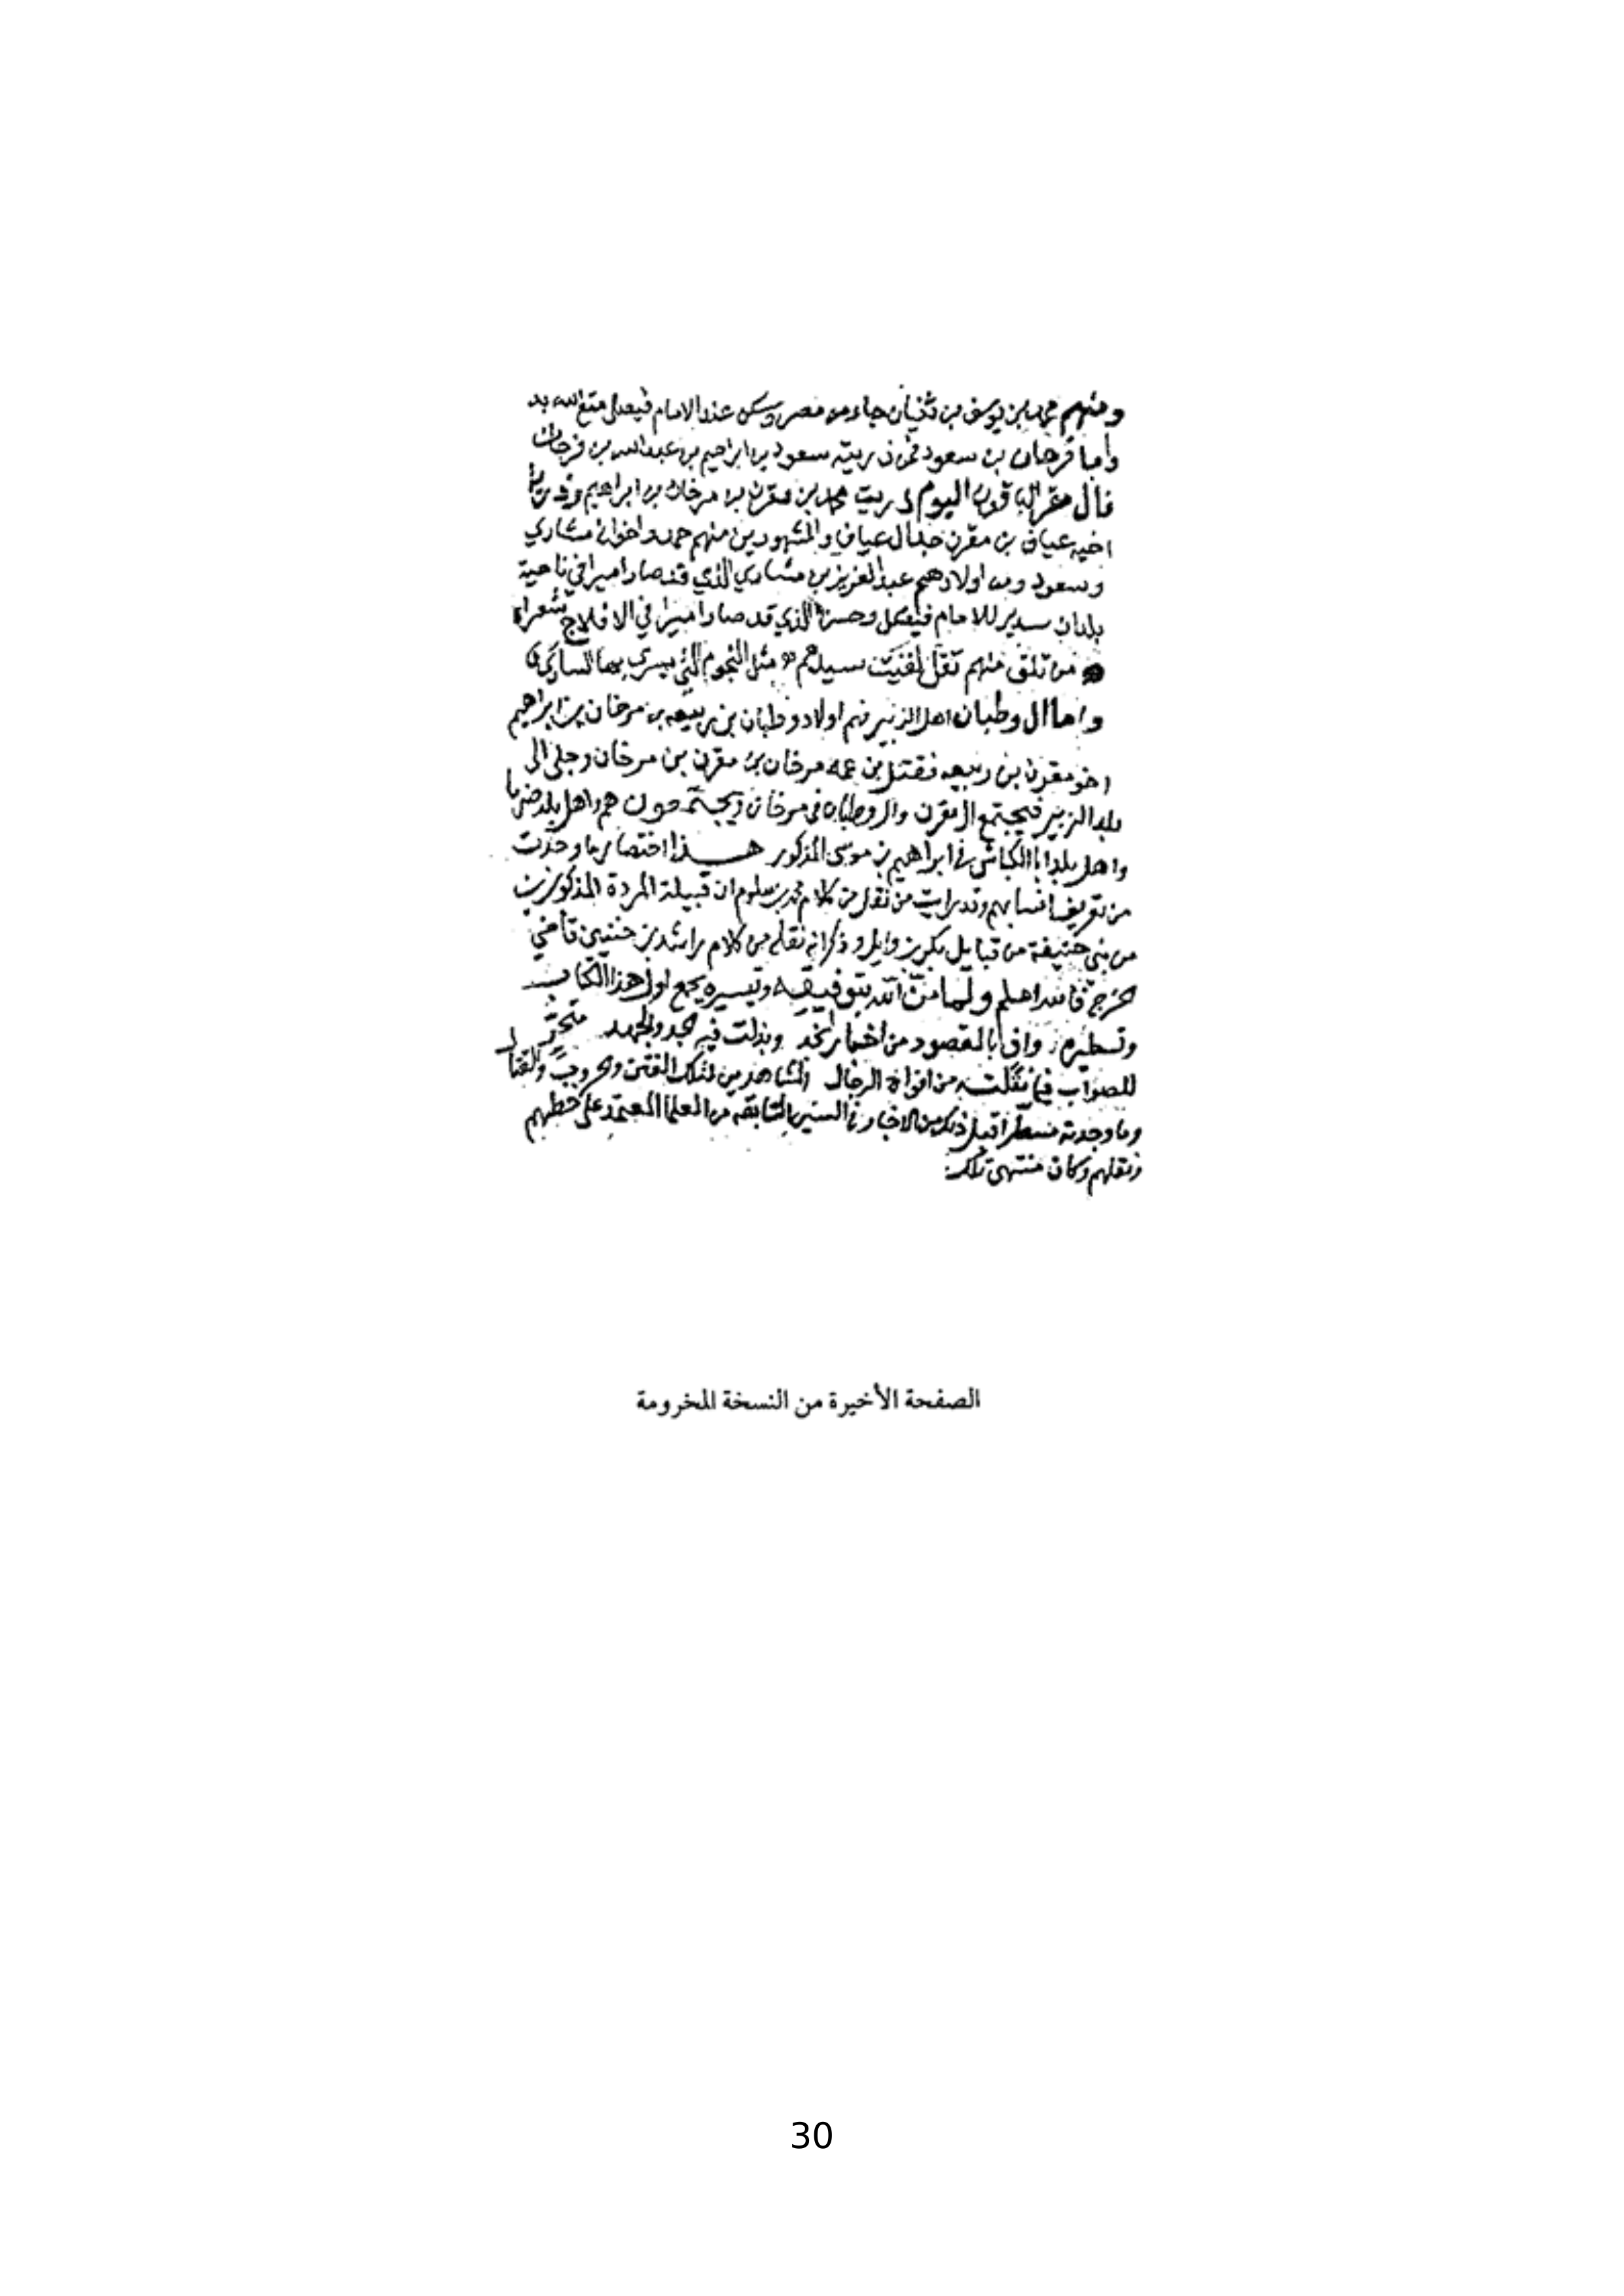 ومنهم محمد بن يوسف بن ثنيان جاء من مصر وسكن عند الامام فيصل متع الله به
واما فرحان بن سعود فمن ذريته سعود بن ابراهيم بن عبدالله بن فرحان
فال مقرن اليوم ذرية محمد بن مقرن بن مرخان بن ابراهيم وذرية
اخيه عياف بن مقرن جد ال عياف والمشهورين منهم حمد واخوانه مشاري
وسعود ومن اولادهم عبدالعزيز بن مشاري الذي قد صار اميرا في ناحية
بلدان سدير للامام فيصل وحسن الذي قد صار اميرا في الافلاج شعرا
من تلق منهم تقل لقيت سيدهم مثل النجوم التي يسري بها الساري
واما ال وطبان اهل الزبير فهم اولاد وطبان بن ربيعه بن مرخان بن ابراهيم
اخو مقرن بن ربيعه فقتل بن عمه مرخان بن مقرن بن مرخان وجلى الى
بلد الزبير فيجتمع ال مقرن وال وطبان في مرخان ويجتمعون هم واهل بلد ضرما
واهل بلد ابا الكباش في ابراهيم بن موسى المذكور هذا اختصار ما وجدت
من تعريف انسابهم وقد رايت من نقل من كلام محمد بن سلوم ان قبيلة المردة المذكورين
من بني حنيفة من قبايل بكر بن وايل وذكر انه نقله من كلام راشد بن خنين قاضي
الخرج فالله اعلم ولما من الله بتوفيقه وتيسيره بجمع اول هذا الكتاب
وتسطيره وافيا بالمقصود من اخبار نجد وبذلت فيه الجد والجهد متحر
للصواب فيما نقلته من افواه الرجال المشاهدين لتلك الفتن والحروب والقتال
وما وجدته مسطرا قبل ذلك من الاخبار في السنين السابقه من العلما المعتمد على خطهم
ونقلهم وكان منتهى ذلك
الصفحة الأخيرة من النسخة المخرومة
30